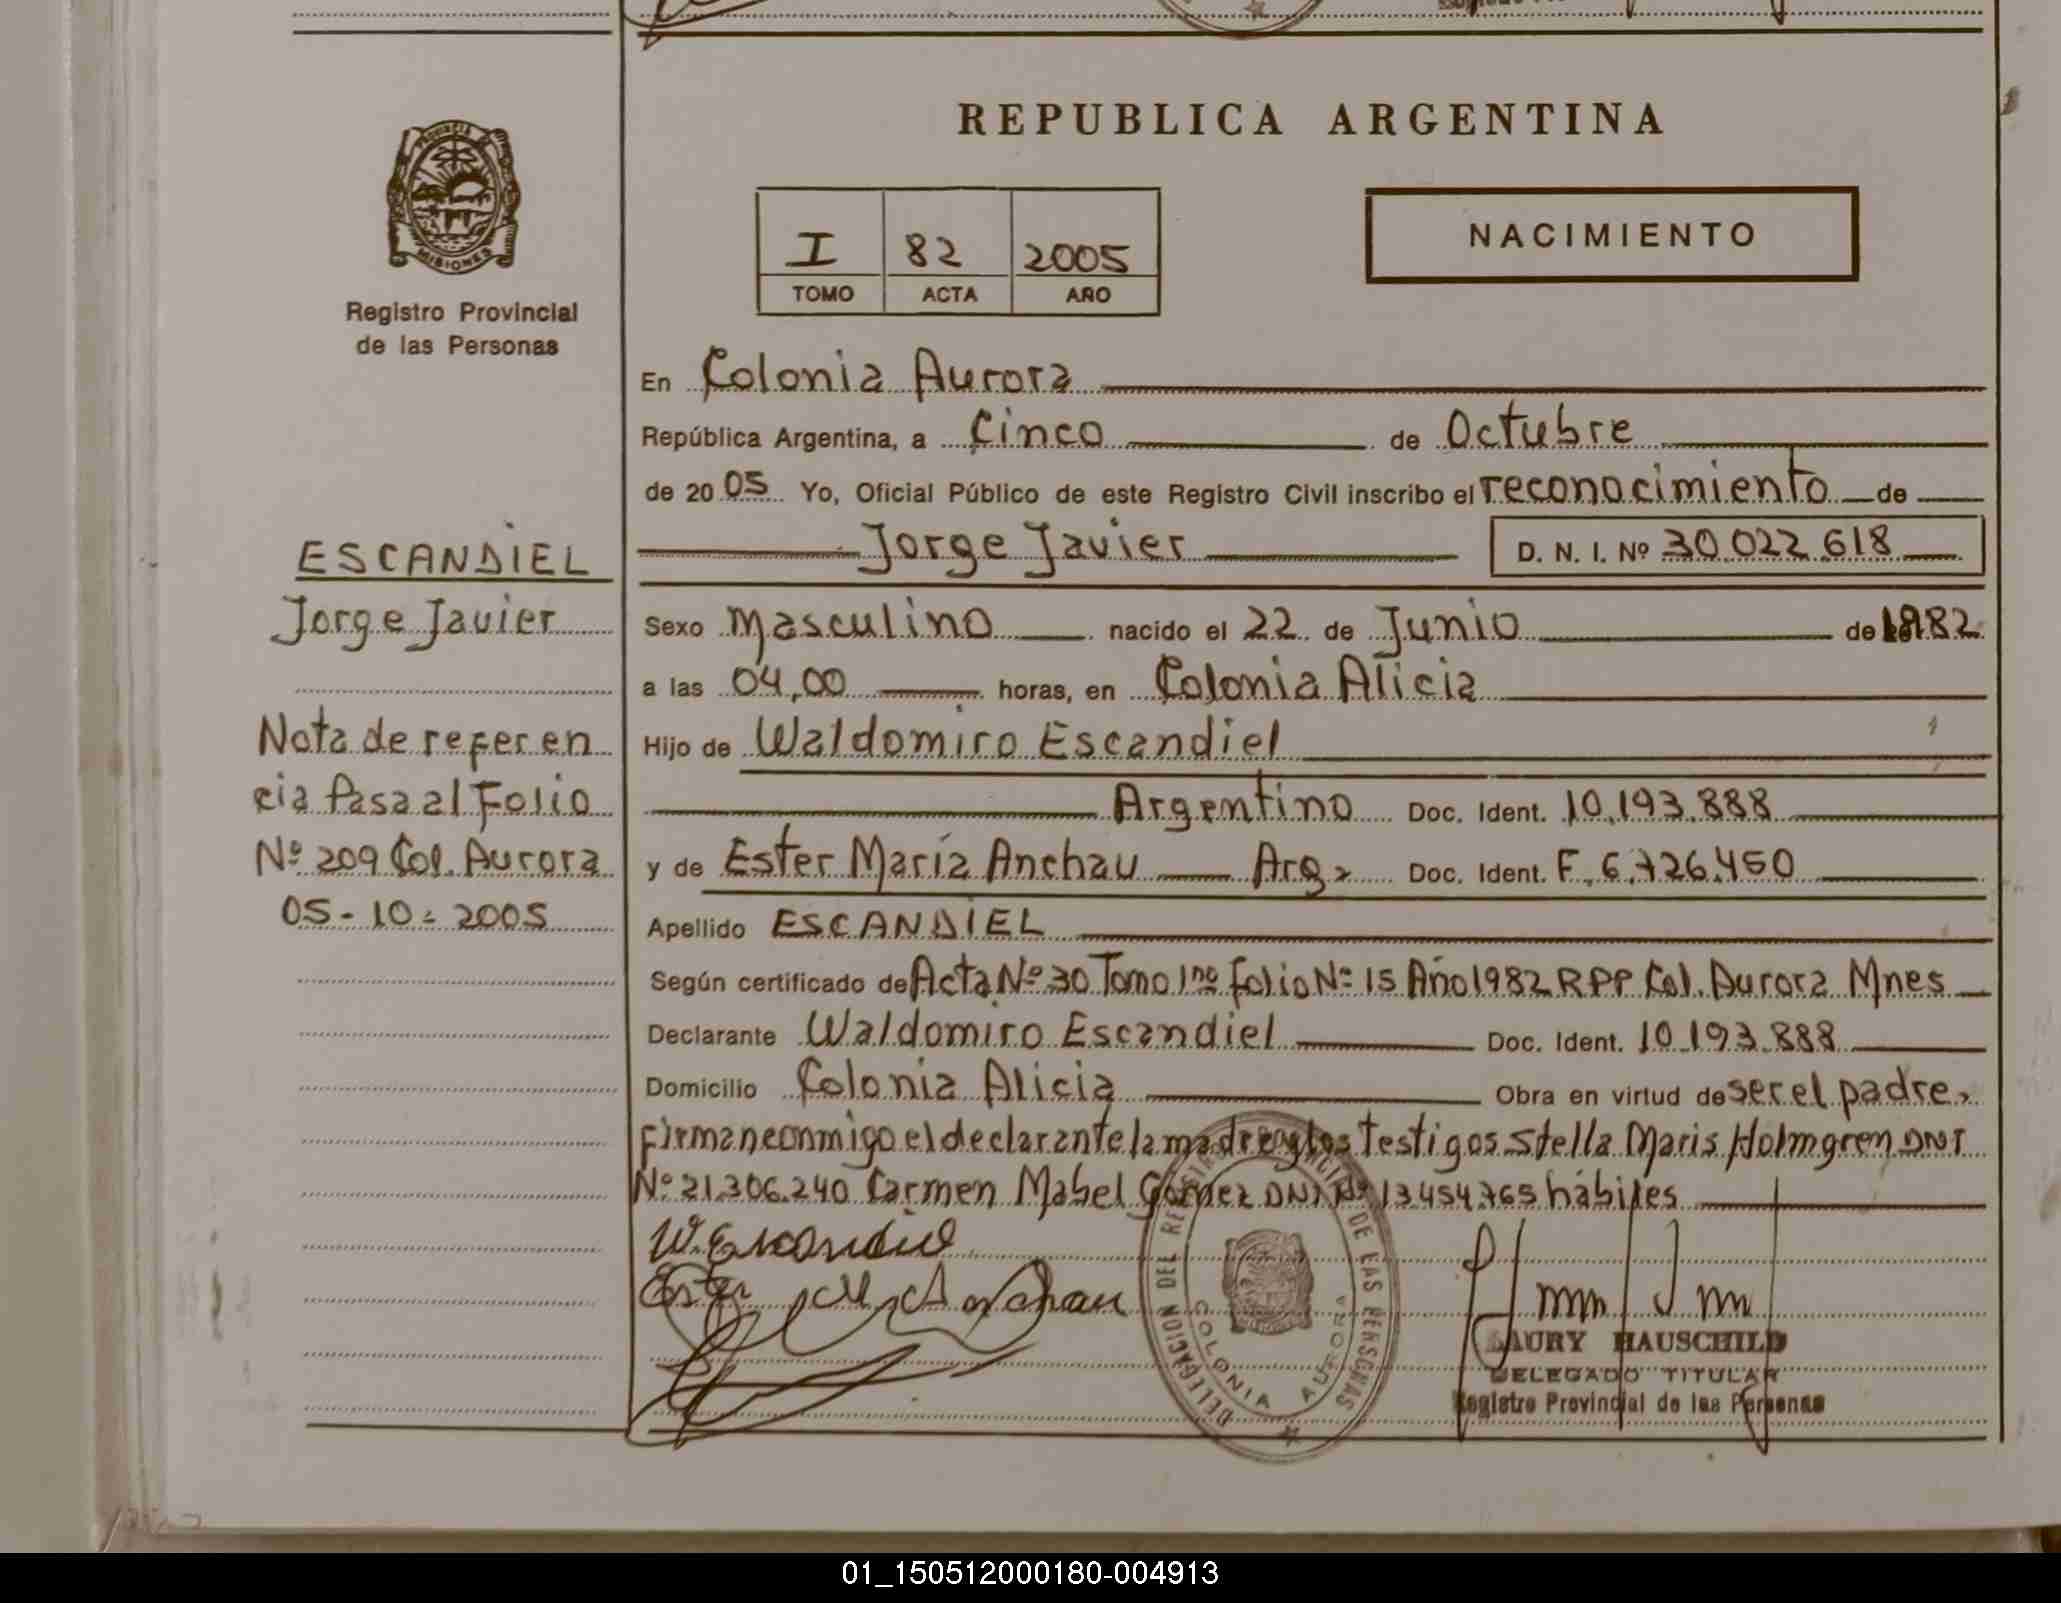 REPUBLICA ARGENTINA
PROVINCIA
MISIONES
Registro Provincial
de las Personas
I 82 2005
TOMO ACTA AÑO
NACIMIENTO
En Colonia Aurora
República Argentina, a Cinco de Octubre
de 2005 Yo, Oficial Público de este Registro Civil inscribo el reconocimiento de
Jorge Javier D. N. I. Nº 30.022.618
ESCANDIEL
Jorge Javier
Nota de referen
cia Pasa al Folio
Nº 209 Col. Aurora
05-10-2005
Sexo Masculino nacido el 22 de Junio de 1982
a las 04,00 horas, en Colonia Alicia
Hijo de Waldomiro Escandiel
Argentino Doc. Ident. 10.193.888
y de Ester María Anchau Arg. Doc. Ident. F. 6.726.450
Apellido ESCANDIEL
Según certificado de Acta Nº 30 Tomo 1no Folio Nº 15 Año 1982 RPP Col. Aurora Mnes
Declarante Waldomiro Escandiel Doc. Ident. 10.193.888
Domicilio Colonia Alicia Obra en virtud de ser el padre,
firman conmigo el declarante la madre y los testigos Stella Maris Holmgren DNI
Nº 21.306.240 Carmen Mabel Gomez DNI Nº 13.454.765 hábiles
W. Escandiel
Ester M. A. Anchau
DELEGACION DEL REGISTRO PROVINCIAL DE LAS PERSONAS
COLONIA AURORA
LAURY HAUSCHILD
DELEGADO TITULAR
Registro Provincial de las Personas
01_150512000180-004913